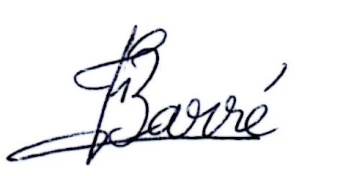 Barré